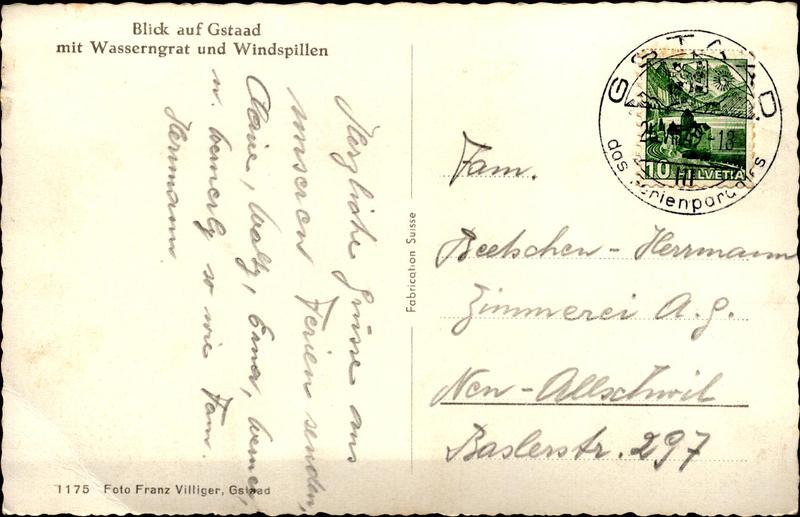 Blick auf Gstaad
mit Wasserngrat und Windspillen
Herzliche Grüsse aus
unseren Ferien senden,
Claire, Walty, Erna, Werner,
u. Wernerly so wie Fam.
Hermann.
1175 Foto Franz Villiger, Gstaad
Fabrication Suisse
GSTAAD
das Ferienparadies
10 HELVETIA
Fam.
Beetschen - Herrmann
Zimmerei A.G.
Neu-Allschwil
Baslerstr. 297